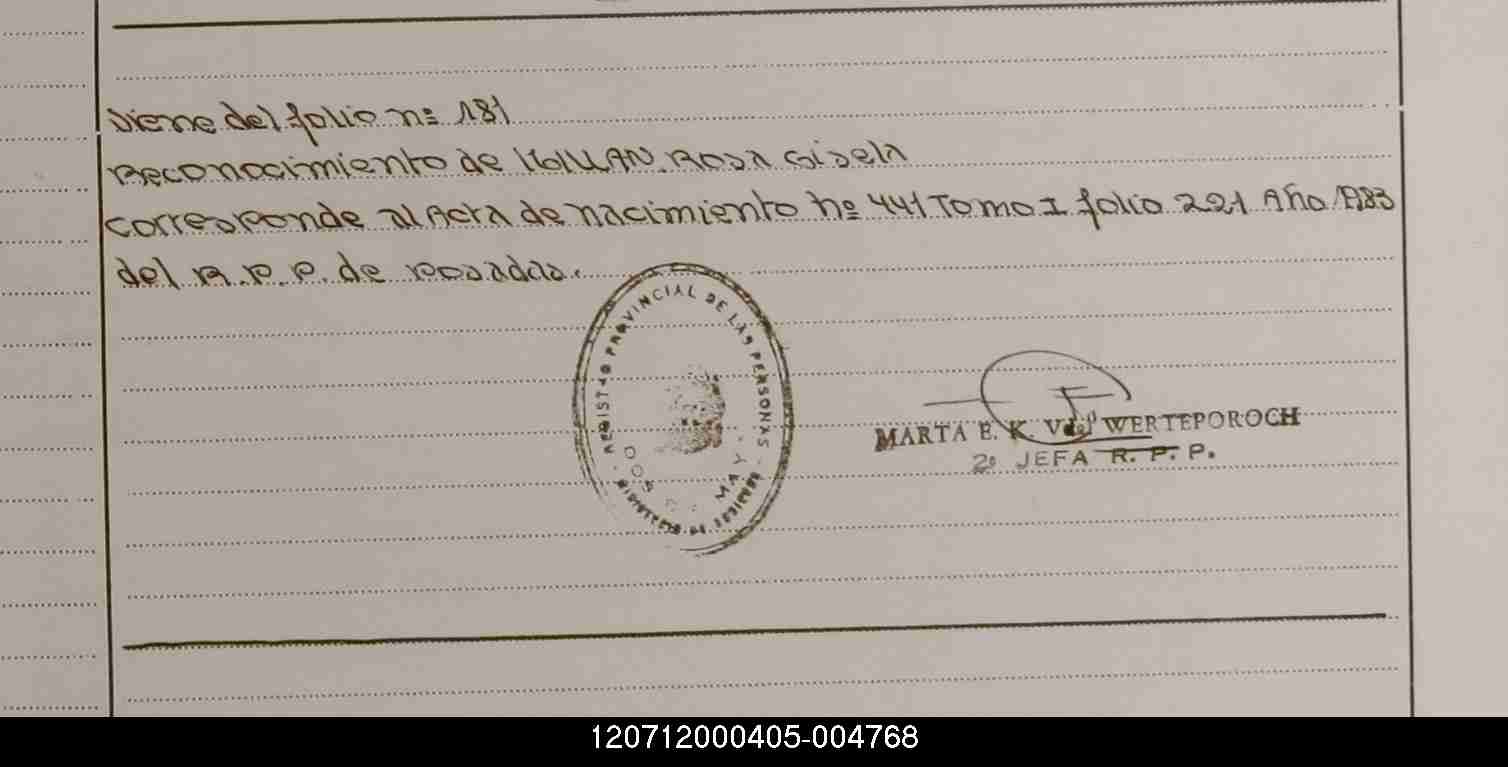 Viene del folio nº 181
Reconocimiento de Rosa Gisela
Corresponde al Acta de nacimiento nº 441 Tomo I folio 221 Año 1983
del R.P.P. de Posadas.
REGISTRO PROVINCIAL DE LAS PERSONAS
MARTA E. K. WERTEPOROCH
2º JEFA R. P. P.
120712000405-004768